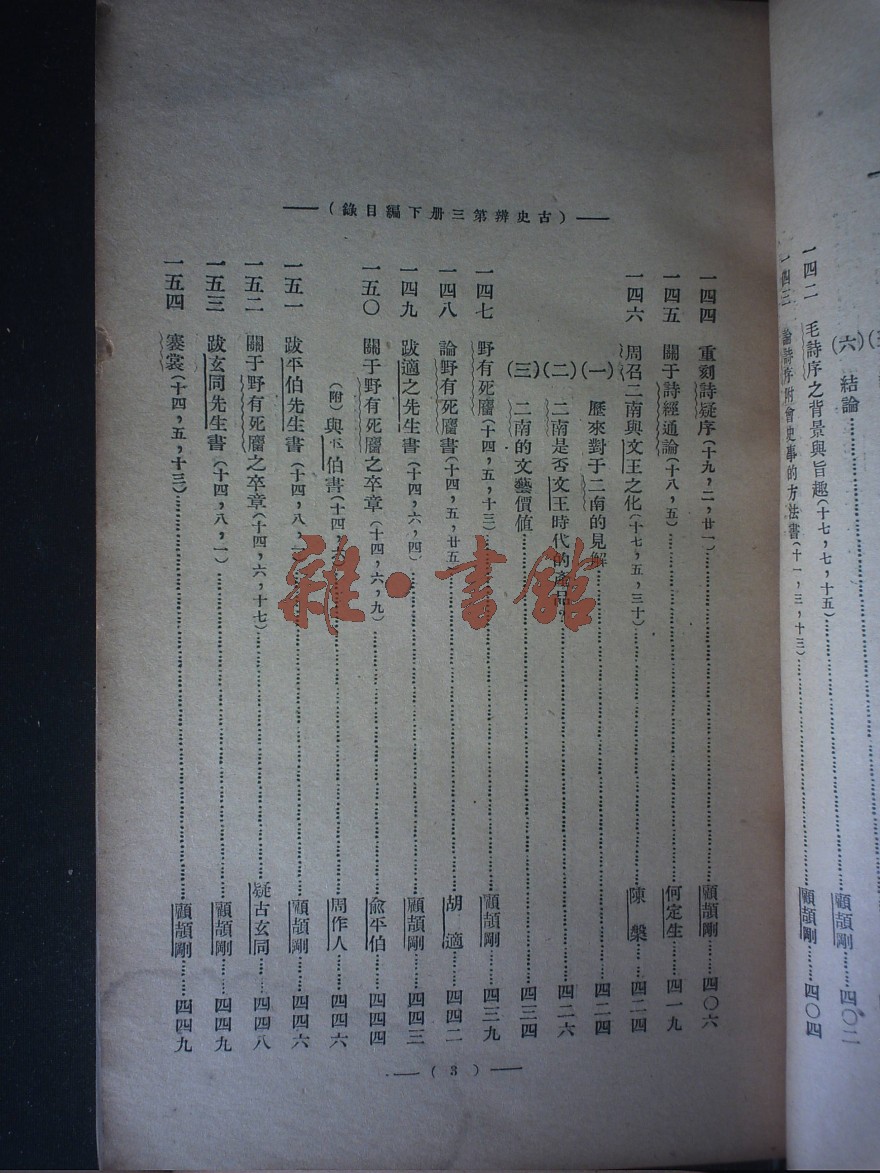 （六）結論……顧頡剛……四〇二
一四二　毛詩序之背景與旨趣（十七，七，十五）
一四三　論詩序附會史事的方法書（十一，三，十三）……顧頡剛……四〇四
（古史辨第三册下編目錄）
一四四　重刻詩疑序（十九，二，廿一）……顧頡剛……四〇六
一四五　關于詩經通論（十八，五）……何定生……四一九
一四六　周召二南與文王之化（十七，五，三十）……陳槃……四二四
（一）歷來對于二南的見解……四二四
（二）二南是否文王時代的產品？……四二六
（三）二南的文藝價值……四三四
一四七　野有死麕（十四，五，十三）……顧頡剛……四三九
一四八　論野有死麕書（十四，五，廿五）……胡適……四四二
一四九　跋適之先生書（十四，六，四）……顧頡剛……四四三
一五〇　關于野有死麕之卒章（十四，六，九）……俞平伯……四四四
（附）與平伯書（十四，六）……周作人……四四六
一五一　跋平伯先生書（十四，八，一）……顧頡剛……四四六
一五二　關于野有死麕之卒章（十四，六，十七）……疑古玄同……四四八
一五三　跋玄同先生書（十四，八，一）……顧頡剛……四四九
一五四　褰裳（十四，五，十三）……顧頡剛……四四九
（3）
雜·書館